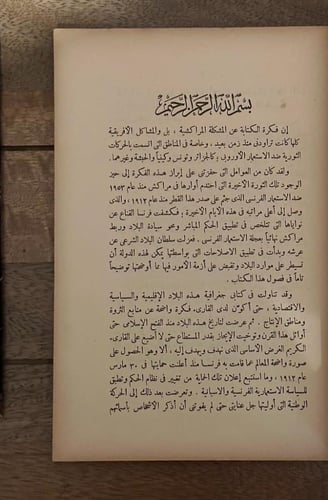 بسم الله الرحمن الرحيم
إن فكرة الكتابة عن المشكلة المراكشية، بل والمشاكل الأفريقية
كلها كانت تراودنى منذ زمن بعيد، وخاصة فى المناطق التى اتسمت بالحركات
الثورية ضد الاستعمار الأوروبى؛ كالجزائر وتونس وكينيا والحبشة وغيرهما.
ولقد كان من العوامل التى حفزتنى على إبراز هذه الفكرة إلى حيز
الوجود تلك الثورة الأخيرة التى احتدم أوارها فى مراكش منذ عام ١٩٥٣
ضد الاستعمار الفرنسى الذى جثم على صدر هذا القطر منذ عام ١٩١٢، والذى
وصل إلى أعلى مراتبه فى هذه الأيام الأخيرة؛ فكشفت فرنسا القناع عن
نواياها التى تتلخص فى تطبيق الحكم المباشر ومحو سيادة البلاد وربط
مراكش نهائياً بعجلة الاستعمار الفرنسى. فعزلت سلطان البلاد الشرعى عن
عرشه وبدأت فى تطبيق الاصلاحات التى بواسطتها يمكن لهذه الدولة أن
تسيطر على موارد البلاد وتقبض على أزمة الأمور فيها مما أوضحتها توضيحاً
تاماً فى فصول هذا الكتاب.
وقد تناولت فى كتابى جغرافية هذه البلاد الإقليمية والسياسية
والاقتصادية، حتى أكون لدى القارىء فكرة واضحة عن منابع الثروة
ومناطق الإنتاج. ثم عرضت لتاريخ هذه البلاد منذ الفتح الإسلامى حتى
أوائل هذا القرن وتوخيت الإيجاز بقدر المستطاع حتى لا أضيع على القارىء
الكريم الغرض الأساسى الذى نهدف ويهدف إليه، ألا وهو الحصول على
صورة واضحة المعالم عما قامت به فرنسا منذ أعلنت حمايتها فى ٣٠ مارس
عام ١٩١٢، وما استتبع إعلان تلك الحماية من تغيير فى نظام الحكم وتطبيق
للسياسة الاستعمارية الفرنسية والاسبانية. وتعرضت بعد ذلك إلى الحركة
الوطنية التى أوليتها جل عنايتى حتى لم يفوتنى أن أذكر الأشخاص بأسمائهم